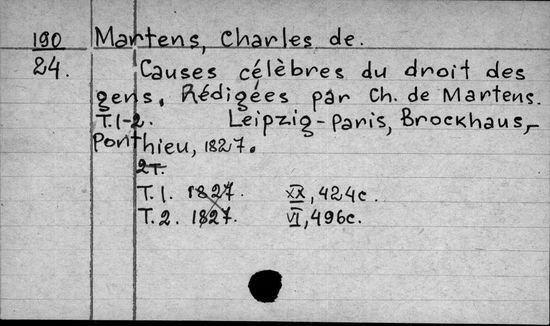 190 Martens, Charles de.
24. Causes célèbres du droit des
gens. Rédigées par Ch. de Martens.
T.1-2. Leipzig-Paris, Brockhaus,-
Ponthieu, 1827.
2T.
T.1. 1827. XX, 424c.
T.2. 1827. VI, 496c.